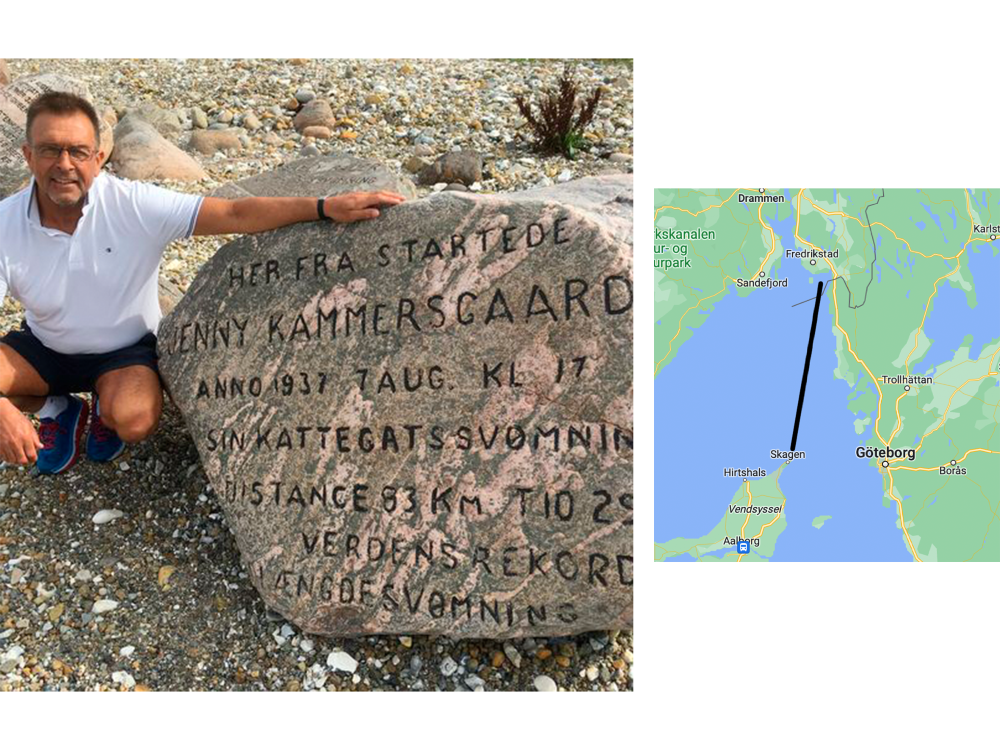 HER FRA STARTEDE
JENNY KAMMERSGAARD
ANNO 1937 7 AUG. KL 17
SIN KATTEGATSSVØMNIN
DISTANCE 93 KM TID 29
VERDENSREKORD
I LÆNGDESVØMNING
Drammen
kskanalen
ur- og
urpark
Fredrikstad
Sandefjord
Karlst
Trollhättan
Skagen
Göteborg
Hirtshals
Borås
Vendsyssel
Aalborg